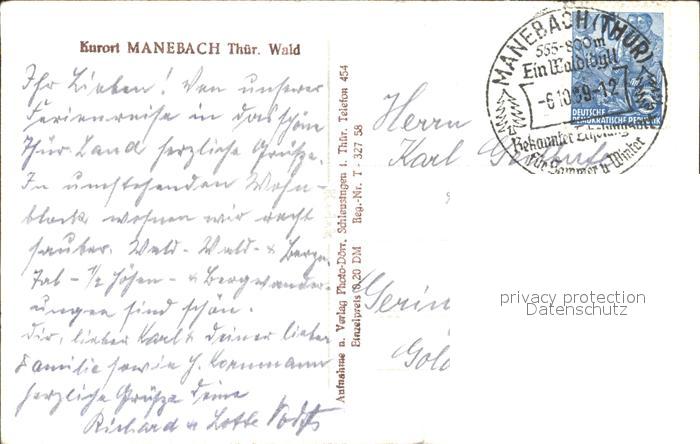 Kurort MANEBACH Thür. Wald
Ihr Lieben! Von unserer
Ferienreise in das schöne
Thür. Land herzliche Grüße.
In umstehenden Wohn-
block wohnen wir recht
sauber. Wald- Wald- & Berge,
Tal- 1/2 Höhen- & Bergwander-
ungen sind schön.
Dir, lieber Karl & deiner lieben
Familie sowie H. Kornmann
herzliche Grüße deine
Richard u Lotte
Aufnahme u. Verlag Photo-Dörr, Schleusingen i. Thür. Telefon 454
Einzelpreis 0,20 DM Reg.-Nr. T - 327 58
MANEBACH (THÜR)
555-800m
Ein Waldidyll
-6.10.59-12
Bekannter Erholungsort
für Sommer u. Winter
DEUTSCHE
DEMOKRATISCHE REPUBLIK
Herrn
Karl
Gerin
privacy protection
Datenschutz